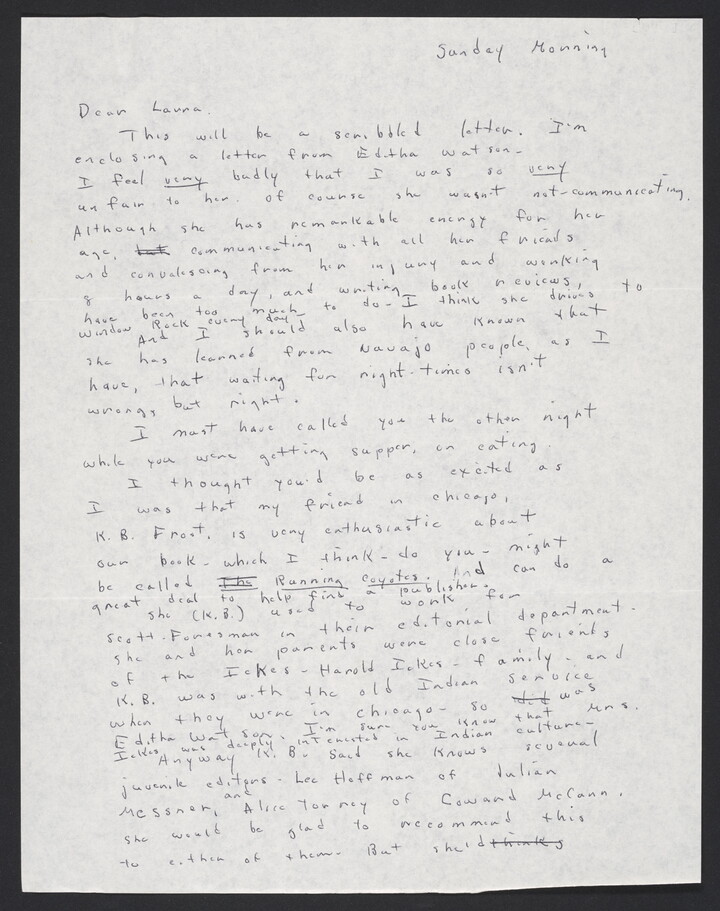 Sunday Morning
Dear Laura.
This will be a scribbled letter. I'm
enclosing a letter from Editha Watson -
I feel very badly that I was so very
unfair to her. Of course she wasn't not-communicating.
Although she has remarkable energy for her
age, but communicating with all her friends
and convalescing from her injury and working
8 hours a day, and writing book reviews,
have been too much to do - I think she drives to
Window Rock every day -
And I should also have known that
she has learned from Navajo people, as I
have, that waiting for right-times isn't
wrong, but right.
I must have called you the other night
while you were getting supper, or eating.
I thought you'd be as excited as
I was that my friend in Chicago,
K.B. Frost, is very enthusiastic about
our book - which I think - do you - might
be called The Running Coyotes. And can do a
great deal to help find a publisher.
She (K.B.) used to work for
Scott-Foresman in their editorial department.
She and her parents were close friends
of the Ickes - Harold Ickes - family - and
K.B. was with the old Indian Service
when they were in Chicago - so did was
Editha Watson. I'm sure you know that Mrs.
Ickes was deeply interested in Indian culture -
Anyway K.B. said she knows several
juvenile editors - Lee Hoffman of Julian
Messner, and Alice Torrey of Coward McCann.
She would be glad to recommend this
to either of them. But she'd thinks